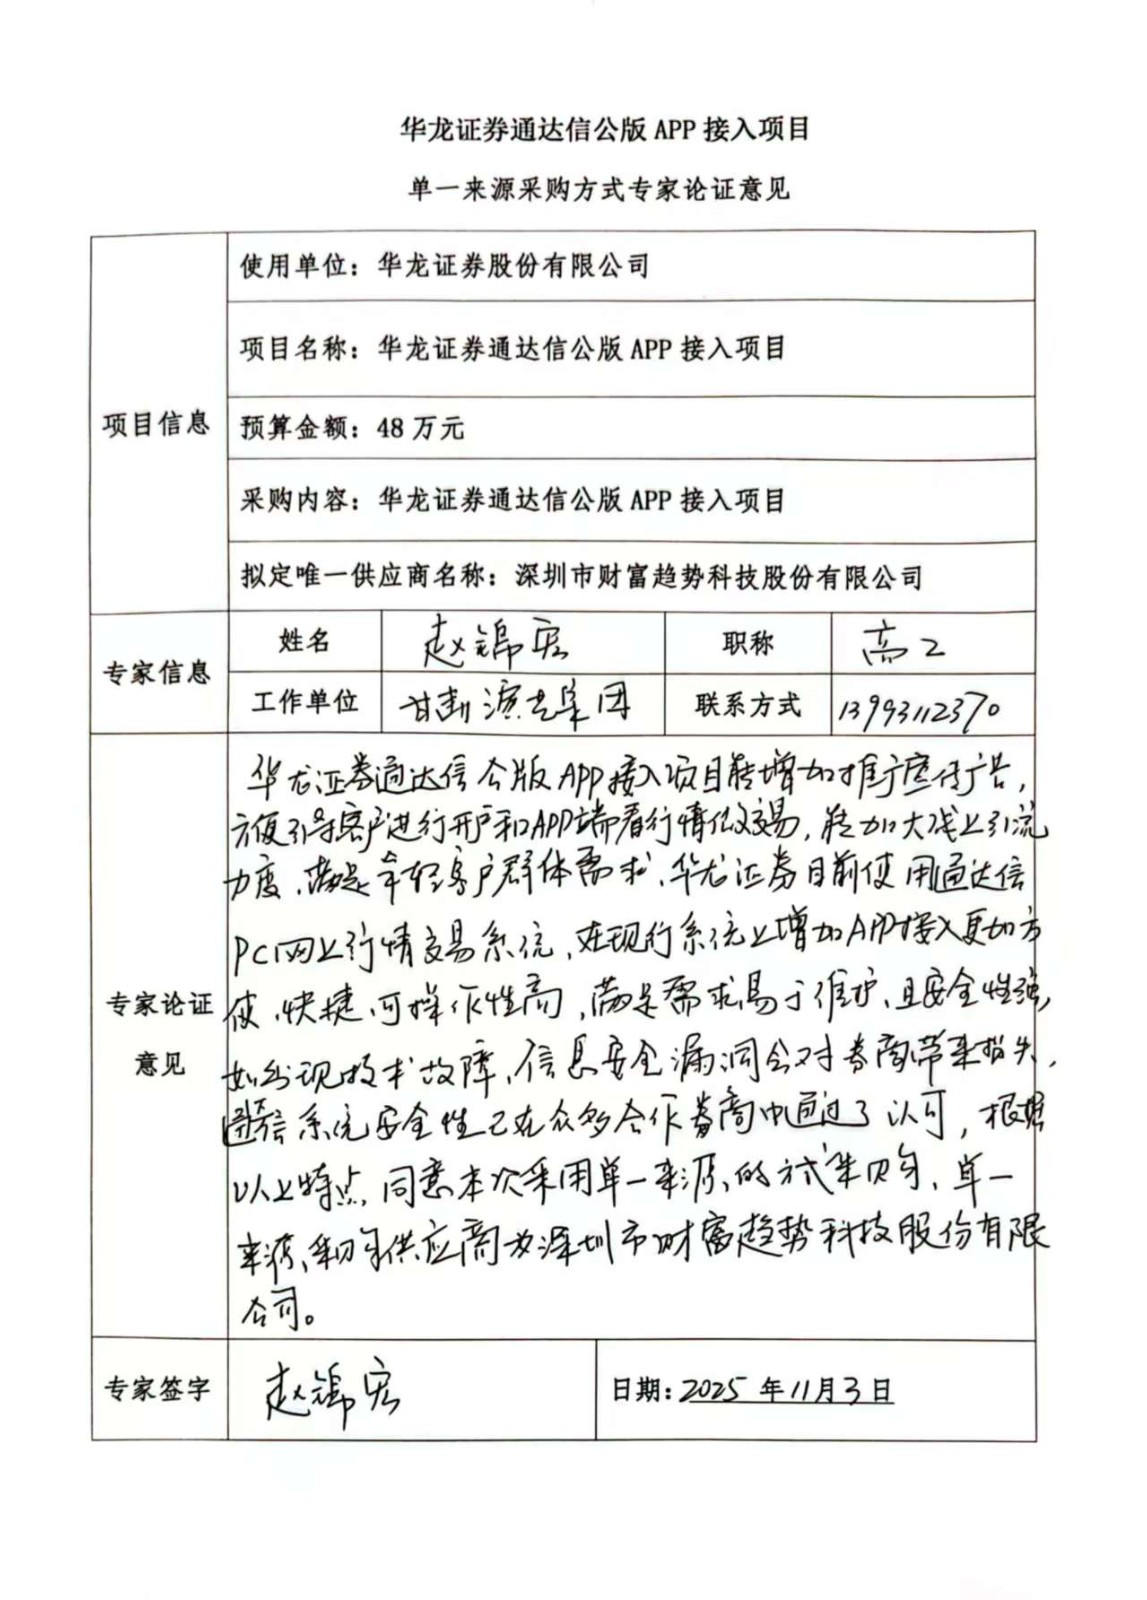 华龙证券通达信公版 APP 接入项目
单一来源采购方式专家论证意见
项目信息
使用单位：华龙证券股份有限公司
项目名称：华龙证券通达信公版 APP 接入项目
预算金额：48 万元
采购内容：华龙证券通达信公版 APP 接入项目
拟定唯一供应商名称：深圳市财富趋势科技股份有限公司
专家信息
姓名 赵锦宏 职称 高工
工作单位 甘肃演艺集团 联系方式 13993112370
专家论证
意见
华龙证券通达信公版APP接入项目能增加推广宣传广告，
方便引导客户进行开户和APP端看行情做交易，能加大线上引流
力度、满足年轻客户群体需求、华龙证券目前使用通达信
PC网上行情交易系统，在现行系统上增加APP接入更加方
便、快捷、可操作性高，满足需求易于维护，且安全性强，
如出现技术故障、信息安全漏洞会对券商带来损失，
系统安全性已在众多合作券商中通过了认可，根据
以上特点，同意本次采用单一来源的方式采购，单一
来源采购供应商为深圳市财富趋势科技股份有限
公司。
专家签字 赵锦宏 日期：2025 年 11 月 3 日